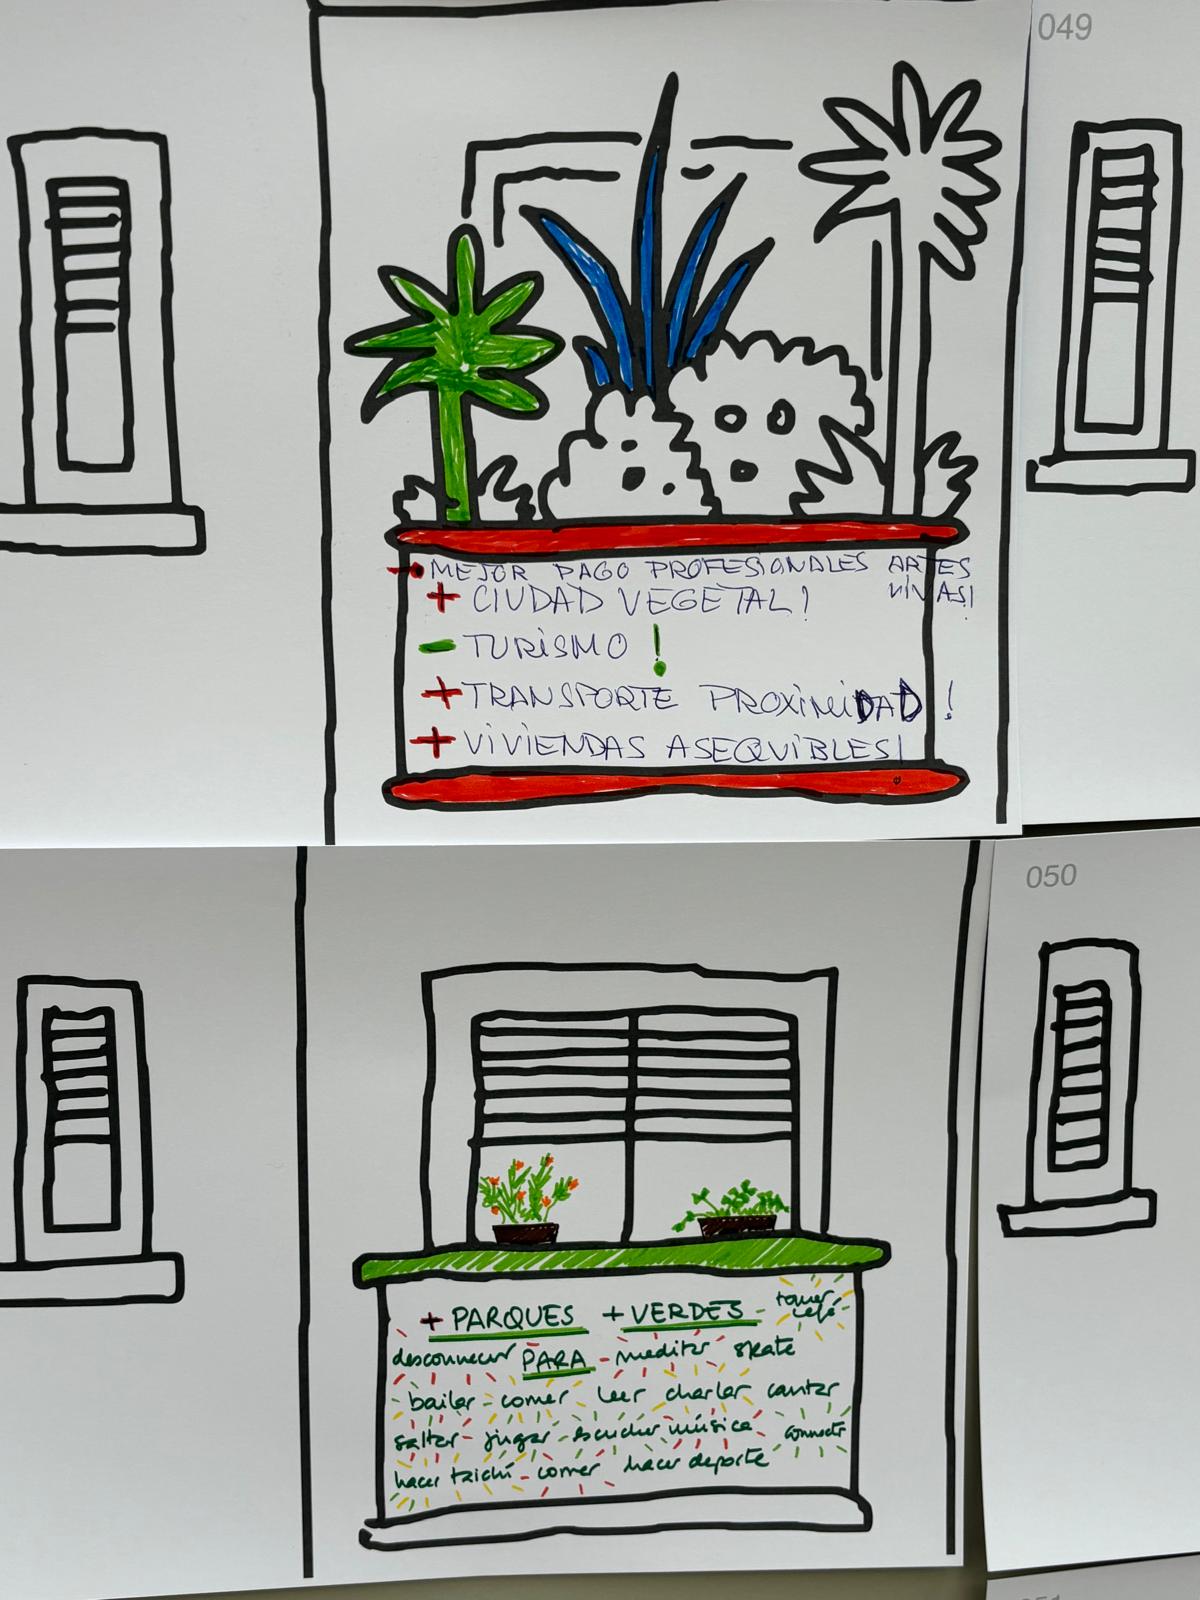 049
→ MEJOR PAGO PROFESIONALES ARTES
VIVAS!
+ CIUDAD VEGETAL!
- TURISMO !
+ TRANSPORTE PROXIMIDAD !
+ VIVIENDAS ASEQUIBLES!
050
+ PARQUES + VERDES - tomar
café
desconnecer PARA - meditar skate
- bailar - comer leer charlar cantar
saltar - jugar - escuchar música
hacer taichí - correr hacer deporte